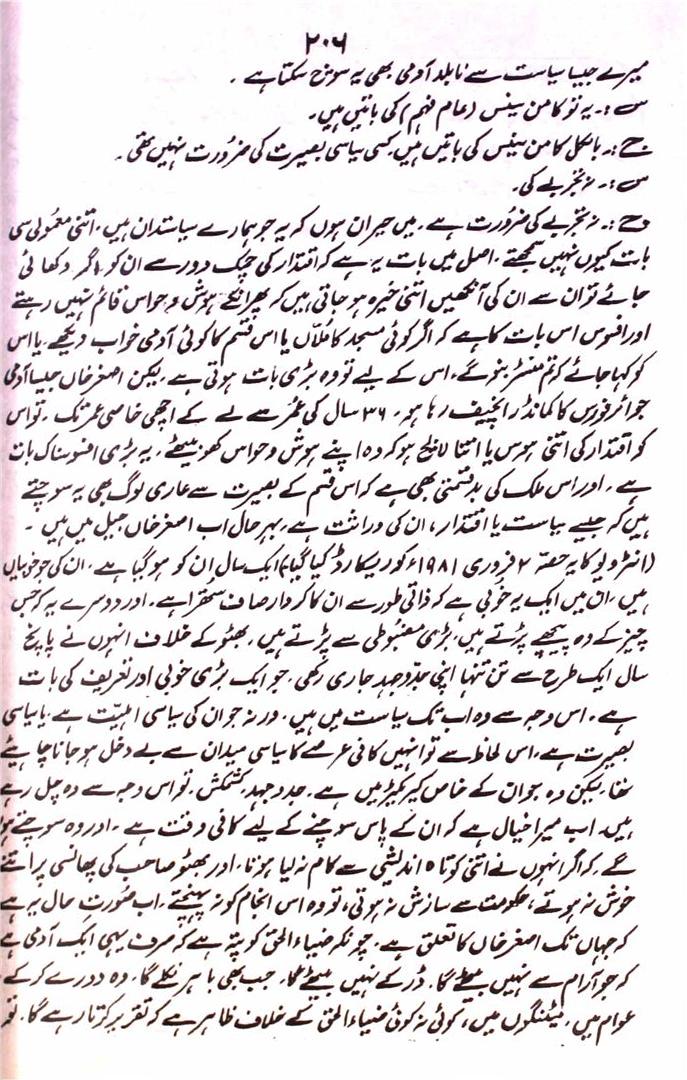 ۲۰۶
میرے جیسا سیاست سے نابلد آدمی بھی یہ سوچ سکتا ہے ۔
س :۔ یہ تو کامن سینس (عام فہم) کی باتیں ہیں۔
ج :۔ بالکل کامن سینس کی باتیں ہیں کسی سیاسی بصیرت کی ضرورت نہیں تھی ۔
س :۔ نہ تجربے کی۔
ج :۔ نہ تجربے کی ضرورت ہے ۔ میں حیران ہوں کہ یہ جو ہمارے سیاستدان ہیں ۔ اتنی معمولی سی
بات کیوں نہیں سمجھتے ۔ اصل میں بات یہ ہے کہ اقتدار کی چمک دور سے ان کو اگر دکھائی
جائے تو ان سے ان کی آنکھیں اتنی خیرہ ہو جاتی ہیں کہ پھر انکے ہوش و حواس قائم نہیں رہتے
اور افسوس اس بات کا ہے کہ اگر کوئی مسجد کا مُلّاں یا اس قسم کا کوئی آدمی خواب دیکھے ۔ یا اس
کو کہا جائے کہ تم منسٹر بنو گے ۔ اس کے لیے تو وہ بڑی بات ہوتی ہے ۔ لیکن اصغر خاں جیسا آدمی
جو ائر فورس کا کمانڈر انچیف رہا ہو ۔ ۳۶ سال کی عمر سے لے کے اچھی خاصی عمر تک ۔ تو اس
کو اقتدار کی اتنی ہوس یا اتنا لالچ ہو کہ وہ اپنے ہوش و حواس کھو بیٹھے ۔ یہ بڑی افسوسناک بات
ہے ۔ اور اس ملک کی بدقسمتی بھی ہے کہ اس قسم کے بصیرت سے عاری لوگ بھی یہ سوچتے
ہیں کہ جیسے سیاست یا اقتدار ، ان کی وراثت ہے ۔ بہرحال اب اصغر خاں جیل میں ہیں ۔
(انٹرویو کا یہ حصّہ ۲ فروری ۱۹۸۱ء کو ریکارڈ کیا گیا) ایک سال ان کو ہو گیا ہے ۔ ان کی جو خوبیاں
ہیں ، ان میں ایک یہ خوبی ہے کہ ذاتی طور سے ان کا کردار صاف ستھرا ہے ۔ اور دوسرے یہ کہ جس
چیز کے وہ پیچھے پڑتے ہیں ، بڑی مضبوطی سے پڑتے ہیں ۔ بھٹو کے خلاف انہوں نے پانچ
سال ایک طرح سے تن تنہا اپنی جدوجہد جاری رکھی ۔ جو ایک بڑی خوبی اور تعریف کی بات
ہے ۔ اس وجہ سے وہ اب تک سیاست میں ہیں ۔ ورنہ جو ان کی سیاسی اہمیّت ہے ۔ یا سیاسی
بصیرت ہے ۔ اس لحاظ سے تو انہیں کافی عرصے کا سیاسی میدان سے بے دخل ہو جانا چاہیئے
تھا ۔ لیکن وہ جو ان کے خاص کیریکٹر میں ہے ۔ جدوجہد ، کشمکش ۔ تو اس وجہ سے وہ چل رہے
ہیں ۔ اب میرا خیال ہے کہ ان کے پاس سوچنے کے لیے کافی وقت ہے ۔ اور وہ سوچتے ہوں
گے ۔ کہ اگر انہوں نے اتنی کوتاہ اندیشی سے کام نہ لیا ہوتا ، اور بھٹو صاحب کی پھانسی پر اتنے
خوش نہ ہوتے ، حکومت سے سازش نہ ہوتی ، تو وہ اس انجام کو نہ پہنچتے ۔ اب صُورتِ حال یہ ہے
کہ جہاں تک اصغر خاں کا تعلق ہے ۔ چونکہ ضیاء الحق کو پتہ ہے کہ صرف یہی ایک آدمی ہے
کہ جو آرام سے نہیں بیٹھے گا ۔ ڈر کے نہیں بیٹھے گا ۔ جب بھی باہر نکلے گا ۔ وہ دورے کر کے
عوام میں ، میٹنگوں میں ، کوئی نہ کوئی ضیاء الحق کے خلاف ظاہر ہے کہ تقریر کرتا رہے گا ۔ تو